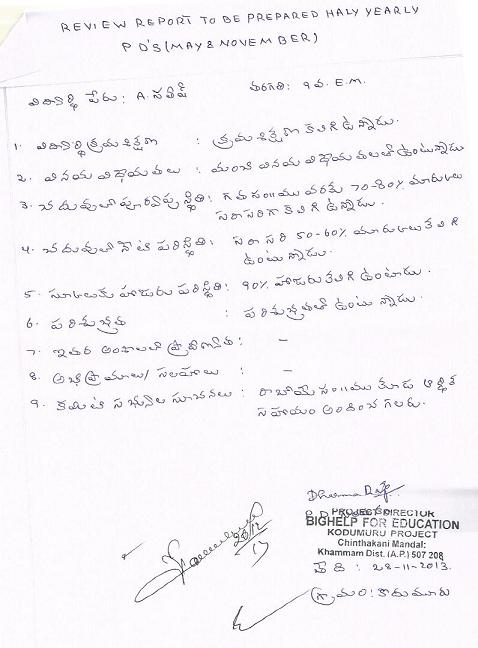 REVIEW REPORT TO BE PREPARED HALY YEARLY
P D'S (MAY & NOVEMBER)
విద్యార్థి పేరు : A. సతీష్ తరగతి : 9 వ. E.M.
1. విద్యార్థి క్రమశిక్షణ : క్రమశిక్షణ కలిగి ఉన్నాడు.
2. వినయ విధేయతలు : మంచి వినయ విధేయతలతో ఉంటున్నాడు
3. చదువులో పూర్వపు స్థితి : గత సం॥ము వరకు 70-80% మార్కులు
సరాసరిగా కలిగి ఉన్నాడు.
4. చదువులో నేటి పరిస్థితి : సరాసరి 50-60% మార్కులు కలిగి
ఉంటున్నాడు.
5. స్కూలుకు హాజరు పరిస్థితి : 90% హాజరు కలిగి ఉంటాడు.
6. పరిశుభ్రత : పరిశుభ్రతతో ఉంటున్నాడు.
7. ఇతర అంశాలలో ప్రావీణ్యత : -
8. అభిప్రాయాలు/ సలహాలు : -
9. కమిటి సభ్యుల సూచనలు : రాబోయే సం॥ము కూడ ఆర్థిక
సహాయం అందించగలరు.
PROJECT DIRECTOR
BIGHELP FOR EDUCATION
KODUMURU PROJECT
Chinthakani Mandal:
Khammam Dist. (A.P.) 507 208
తేది : 28-11-2013.
గ్రామం : కొదుమూరు